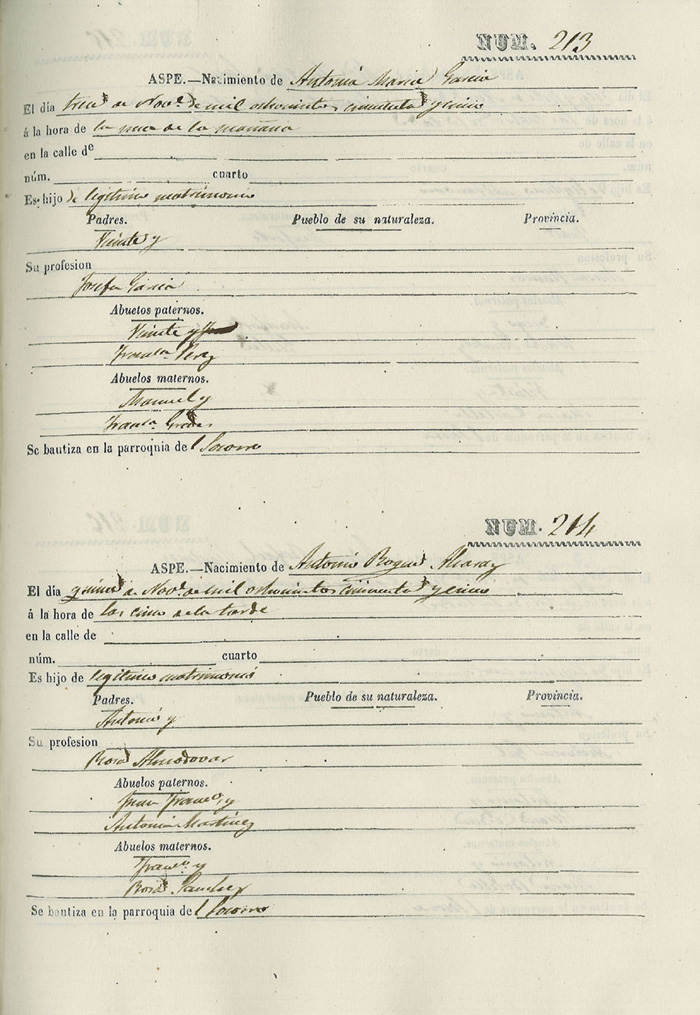 NUM. 213
ASPE.—Nacimiento de Antonia Maria Garcia
El día trece de Novᵉ de mil ochocientos cincuenta y cinco
á la hora de la una de la mañana
en la calle de
núm. cuarto
Es hijo de legitimo matrimonio
Padres. Pueblo de su naturaleza. Provincia.
Vicente y
Su profesion
Josefa Garcia
Abuelos paternos.
Vicente y
Franᶜᵃ Perez
Abuelos maternos.
Manuel y
Franᶜᵃ
Se bautiza en la parroquia del Socorro
NUM. 214
ASPE.—Nacimiento de Antonio Roque Alcaraz
El día quince de Novᵉ de mil ochocientos cincuenta y cinco
á la hora de las cinco de la tarde
en la calle de
núm. cuarto
Es hijo de legitimo matrimonio
Padres. Pueblo de su naturaleza. Provincia.
Antonio y
Su profesion
Rosa Almodovar
Abuelos paternos.
Juan Francᵒ y
Antonia Martinez
Abuelos maternos.
Francᵒ y
Rosa Sanchez
Se bautiza en la parroquia del Socorro